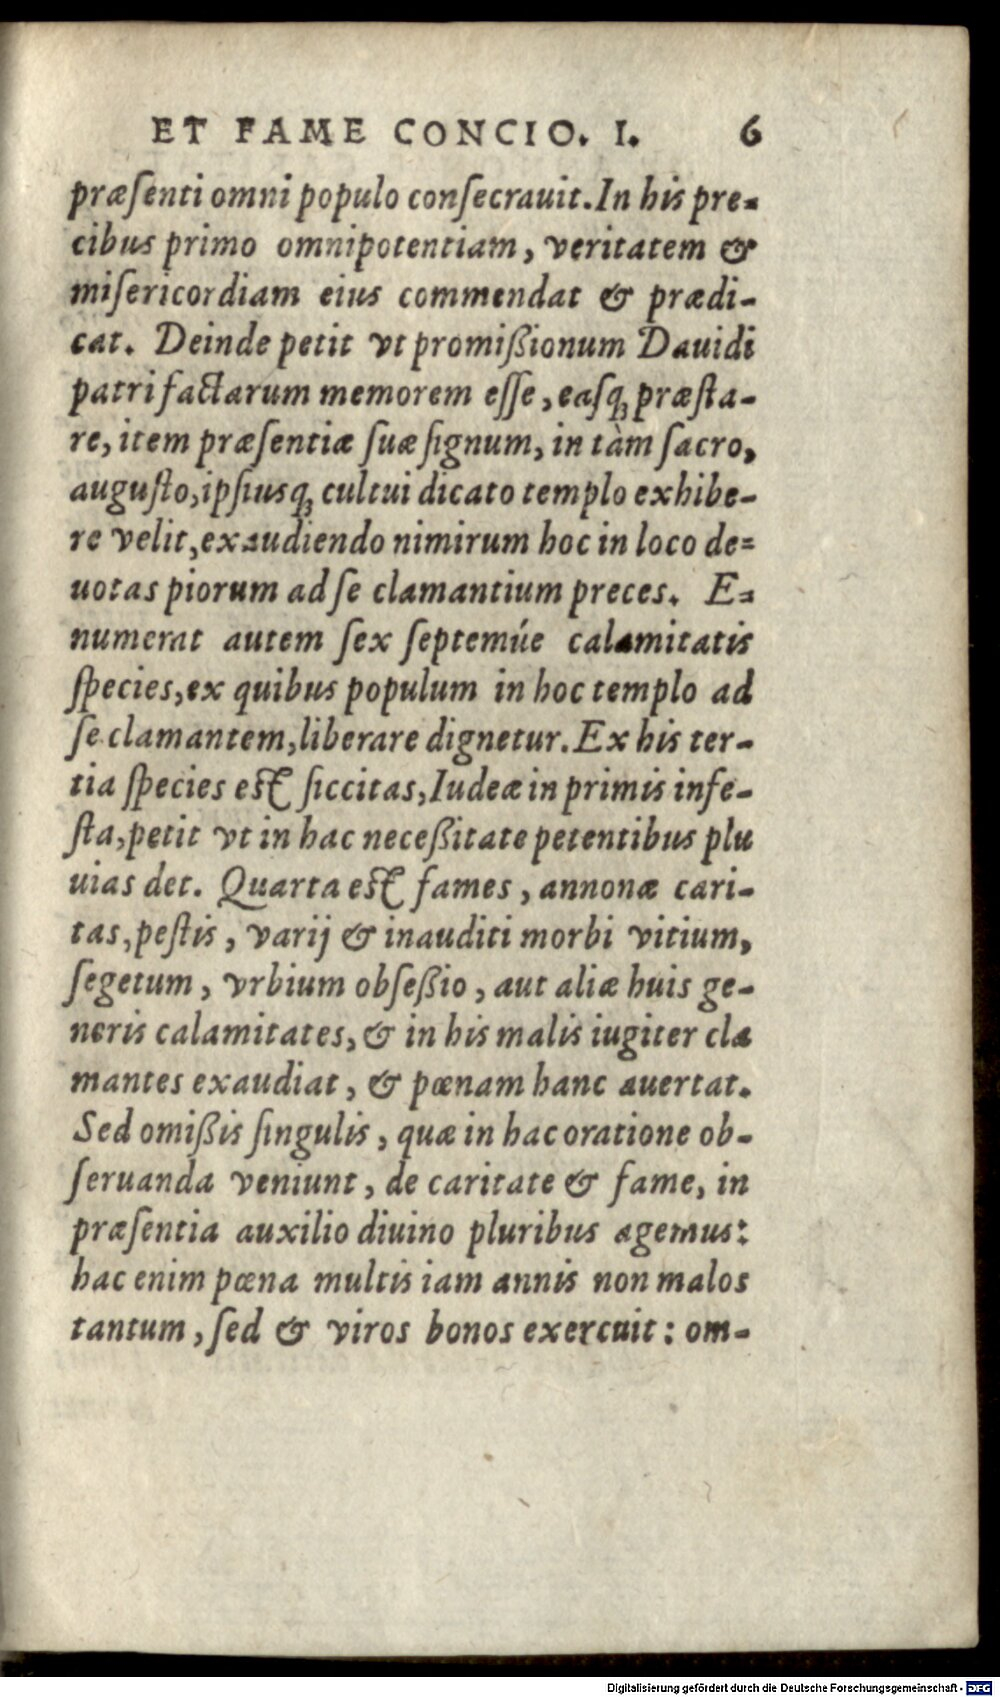 ET FAME CONCIO. I. 6
præſenti omni populo conſecrauit. In his pre-
cibus primo omnipotentiam, veritatem &
miſericordiam eius commendat & prædi-
cat. Deinde petit vt promißionum Dauidi
patri factarum memorem eſſe, eaſq; præſta-
re, item præſentiæ ſuæ ſignum, in tàm ſacro,
auguſto, ipſiusq; cultui dicato templo exhibe-
re velit, exaudiendo nimirum hoc in loco de=
uotas piorum ad ſe clamantium preces. E=
numerat autem ſex ſeptemúe calamitatis
ſpecies, ex quibus populum in hoc templo ad
ſe clamantem, liberare dignetur. Ex his ter-
tia ſpecies eſt ſiccitas, Iudeæ in primis infe-
ſta, petit vt in hac neceßitate petentibus plu
uias det. Quarta eſt fames, annonæ cari-
tas, peſtis, varij & inauditi morbi vitium,
ſegetum, vrbium obſeßio, aut aliæ huis ge-
neris calamitates, & in his malis iugiter cla
mantes exaudiat, & pœnam hanc auertat.
Sed omißis ſingulis, quæ in hac oratione ob-
ſeruanda veniunt, de caritate & fame, in
præſentia auxilio diuino pluribus agemus:
hac enim pœna multis iam annis non malos
tantum, ſed & viros bonos exercuit: om-
Digitalisierung gefördert durch die Deutsche Forschungsgemeinschaft - DFG